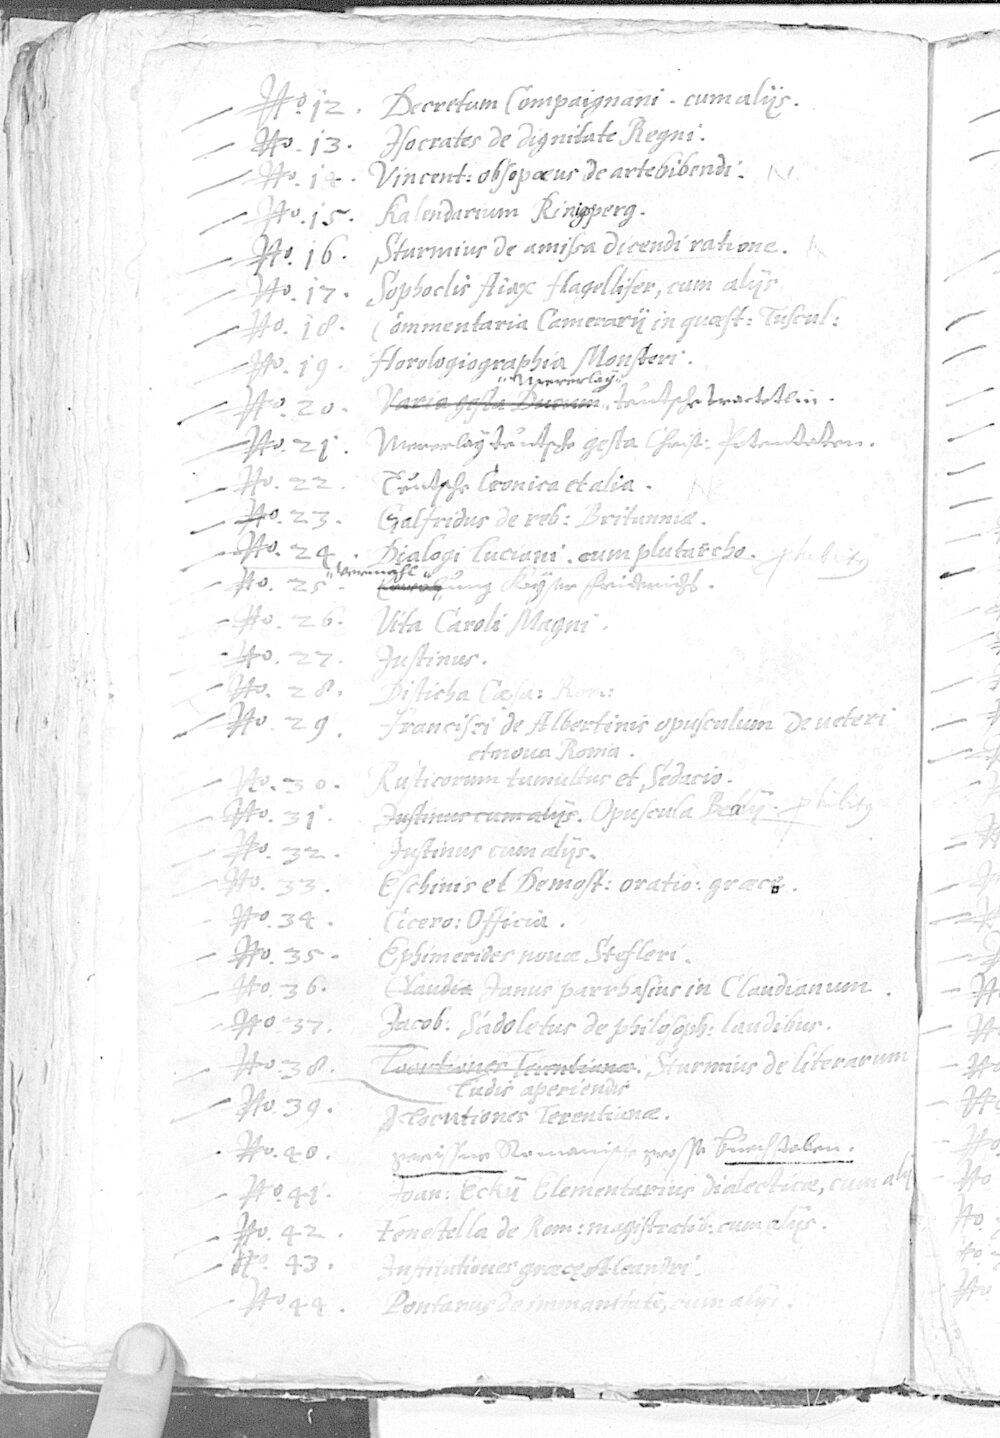 No. 12. Decretum Compaignani. cum alijs.
No. 13. Isocrates de dignitate Regni.
No. 14. Vincent: obsopæus de arte bibendi. N
No. 15. Kalendarium Ringperg.
No. 16. Sturmius de amissa dicendi ratione. N
No. 17. Sophoclis Aiax flagellifer, cum alijs
No. 18. Commentaria Camerarij in quæst: Tuscul:
No. 19. Horologiographia Monsteri.
"Mererlay"
No. 20. Varia gesta Ducum, teutsche tractetlin.
No. 21. Mererlay teutsche gesta Christ: Potentaten.
No. 22. Teutsche Cronica et alia.
No. 23. Galfridus de reb: Britanniæ.
No. 24. Dialogi Luciani. cum plutarcho.
"Vermahl"
No. 25. ung Kayser Friderichs.
No. 26. Vita Caroli Magni.
No. 27. Justinus.
No. 28. Disticha Cæsa: Rom:
No. 29. Francisci de Albertinis opusculum de veteri
et nova Roma.
No. 30. Rusticorum tumultus et Sedacio.
No. 31. Justinus cum alijs. Opuscula
No. 32. Justinus cum alijs.
No. 33. Eschinis et Demost: oratio: græce.
No. 34. Cicero: Officia.
No. 35. Ephimerides novæ Stefleri.
No. 36. Claudia Janus parrhasius in Claudianum.
No. 37. Jacob: Sadoletus de philosoph: laudibus.
No. 38. Locutiones Terentianæ. Sturmius de literarum
Ludis aperiendis
No. 39. Locutiones Terentianæ.
No. 40. Romanische grosse Buechstaben.
No. 41. Joan: Eckij Elementarius dialecticæ, cum alij
No. 42. Fenestella de Rom: magistratib: cum alijs.
No. 43. Institutiones græcæ Aleandri.
No. 44. Pontanus de immanitate, cum alijs.